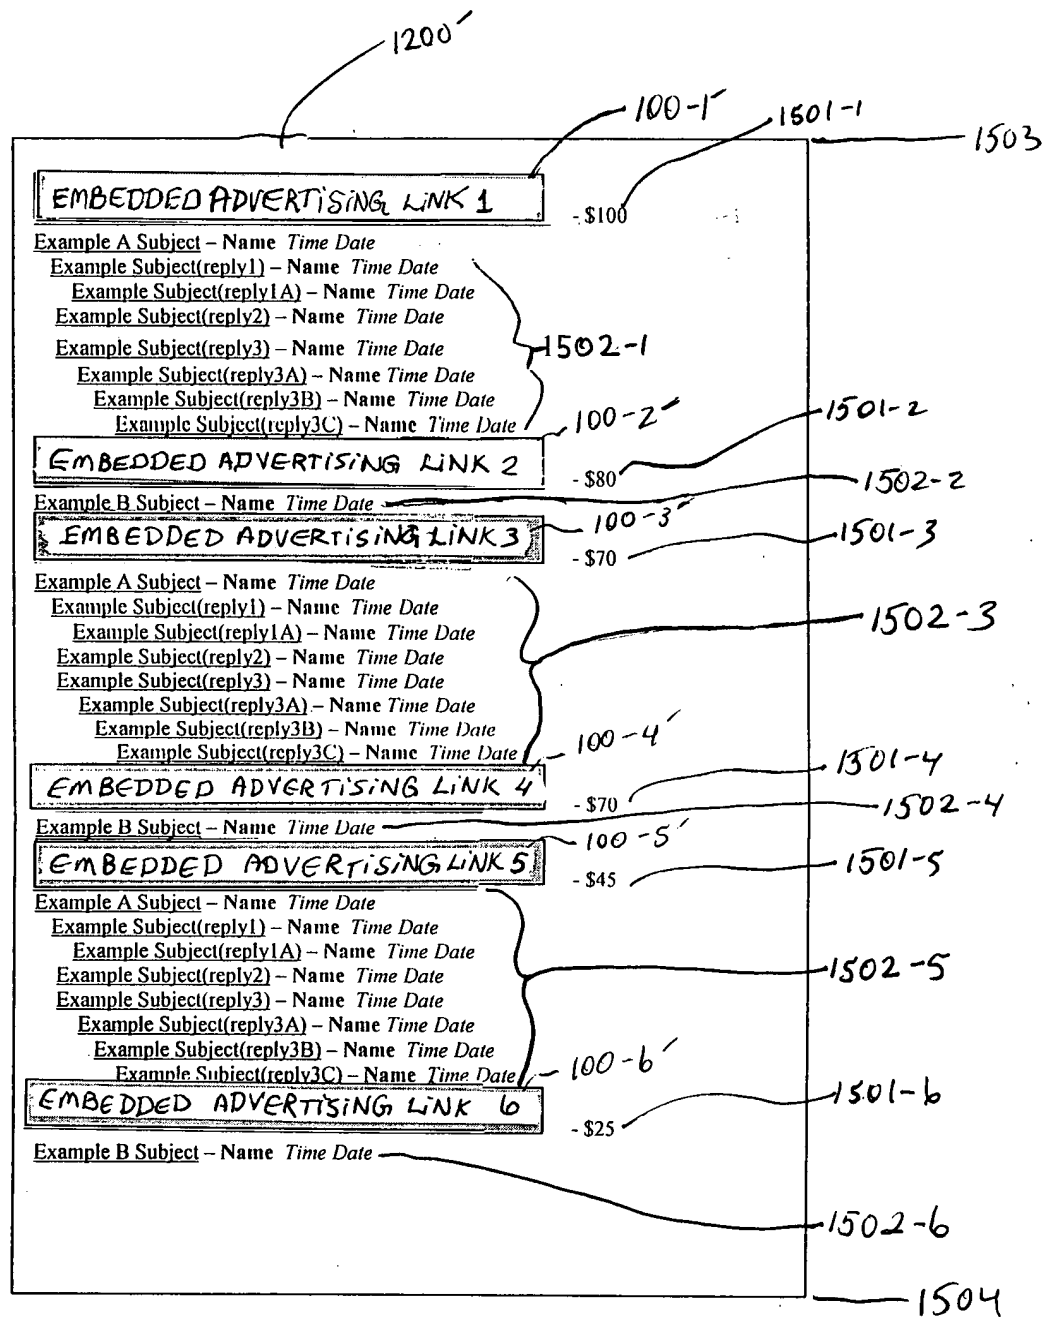 1200′
100-1′
1501-1
1503
EMBEDDED ADVERTISING LINK 1
- $100
Example A Subject – Name Time Date
Example Subject(reply1) – Name Time Date
Example Subject(reply1A) – Name Time Date
Example Subject(reply2) – Name Time Date
Example Subject(reply3) – Name Time Date
1502-1
Example Subject(reply3A) – Name Time Date
Example Subject(reply3B) – Name Time Date
Example Subject(reply3C) – Name Time Date
100-2′
1501-2
EMBEDDED ADVERTISING LINK 2
- $80
1502-2
Example B Subject – Name Time Date
100-3′
EMBEDDED ADVERTISING LINK 3
1501-3
- $70
Example A Subject – Name Time Date
Example Subject(reply1) – Name Time Date
1502-3
Example Subject(reply1A) – Name Time Date
Example Subject(reply2) – Name Time Date
Example Subject(reply3) – Name Time Date
Example Subject(reply3A) – Name Time Date
Example Subject(reply3B) – Name Time Date
Example Subject(reply3C) – Name Time Date
100-4′
1501-4
EMBEDDED ADVERTISING LINK 4
- $70
1502-4
Example B Subject – Name Time Date
100-5′
EMBEDDED ADVERTISING LINK 5
1501-5
- $45
Example A Subject – Name Time Date
Example Subject(reply1) – Name Time Date
Example Subject(reply1A) – Name Time Date
Example Subject(reply2) – Name Time Date
1502-5
Example Subject(reply3) – Name Time Date
Example Subject(reply3A) – Name Time Date
Example Subject(reply3B) – Name Time Date
Example Subject(reply3C) – Name Time Date
100-6′
1501-6
EMBEDDED ADVERTISING LINK 6
- $25
Example B Subject – Name Time Date
1502-6
1504